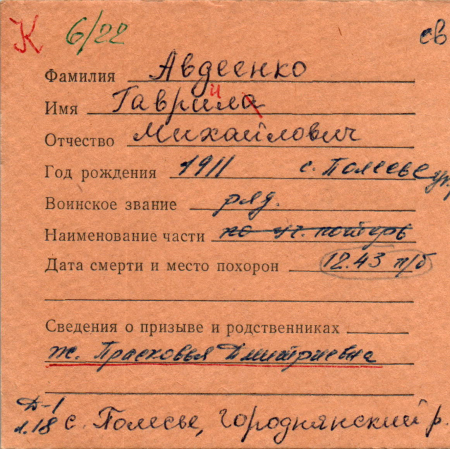 К 6/22 св
Фамилия Авдеенко
Имя Гаврийла
Отчество Михайлович
Год рождения 1911 с. Полесье
Воинское звание ряд.
Наименование части потерь
Дата смерти и место похорон 12.43 п/б
Сведения о призыве и родственниках
ж. Прасковья Дмитриевна
Д-1
л.18 с. Полесье, Городнянский р.